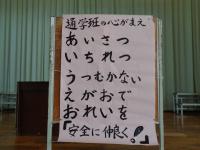 通学班の心がまえ
あいさつ
いちれつ
うつむかない
えがおで
おれいを
「安全に仲良く!!」